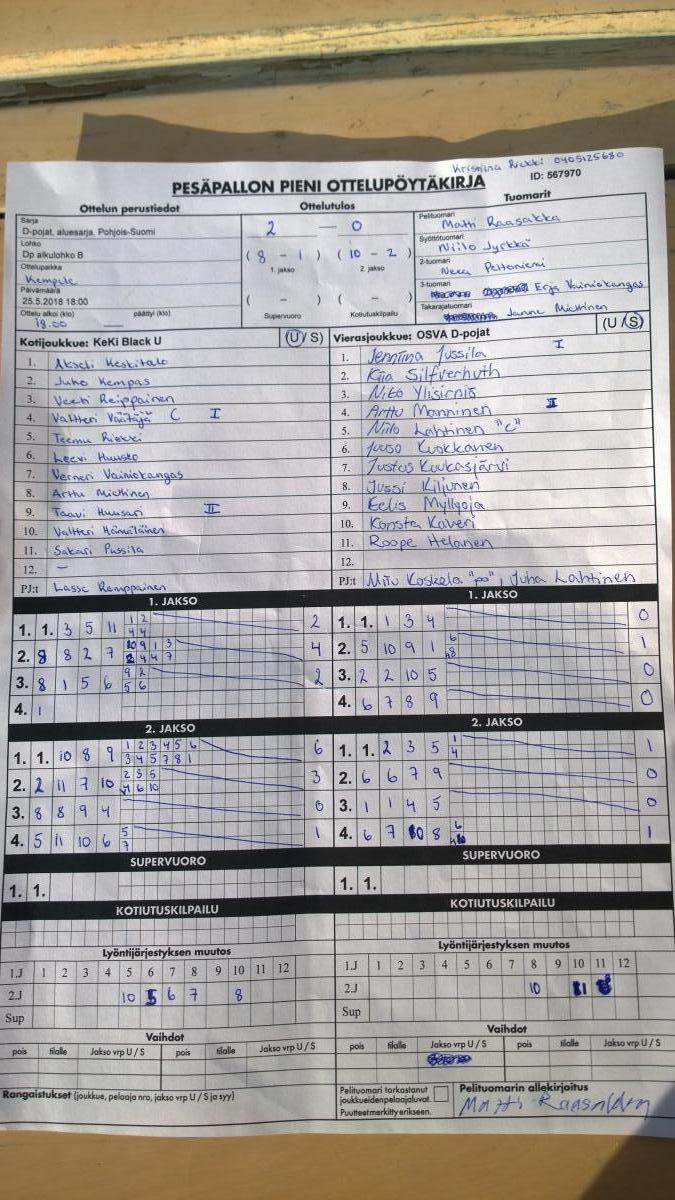 Kristiina Riekki 0405125680
PESÄPALLON PIENI OTTELUPÖYTÄKIRJA
ID: 567970
Ottelun perustiedot
Ottelutulos
Tuomarit
Sarja
D-pojat, aluesarja, Pohjois-Suomi
Lohko
Dp alkulohko B
Ottelupaikka
Kempele
Päivämäärä
25.5.2018 18:00
Ottelu alkoi (klo) päättyi (klo)
18.00
2 — 0
( 8 - 1 ) ( 10 - 2 )
1. jakso 2. jakso
( - ) ( - )
Supervuoro Kotiutuskilpailu
Pelituomari
Matti Raasakka
Syöttötuomari
Niilo Jyrkkä
2-tuomari
Neea Peltoniemi
3-tuomari
Erja Vainiokangas
Takarajatuomari
Janne Miettinen
Kotijoukkue: KeKi Black U (U / S)
1. Akseli Keskitalo
2. Juho Kempas
3. Veeti Reippainen
4. Valtteri Väätäjä C I
5. Teemu Riekki
6. Leevi Huusko
7. Verneri Vainiokangas
8. Arttu Miettinen
9. Taavi Huusari II
10. Valtteri Hämäläinen
11. Sakari Pussila
12. –
PJ:t Lasse Remppainen
Vierasjoukkue: OSVA D-pojat (U / S)
1. Jemiina Jussila I
2. Kiia Silfverhuth
3. Niko Ylisirniö
4. Arttu Manninen II
5. Niilo Lahtinen "C"
6. Juuso Kuokkanen
7. Justus Kuukasjärvi
8. Jussi Kiljunen
9. Eelis Myllyoja
10. Konsta Kaveri
11. Roope Helanen
12.
PJ:t Miiu Koskela "po", Juha Lahtinen
1. JAKSO
1. 1. 3 5 11 1 2 2
4 4
2. 8 8 2 7 10 9 1 3 4
2 4 4 7
3. 8 1 5 6 9 2 2
5 6
4. 1
1. JAKSO
1. 1. 1 3 4 0
2. 5 10 9 1 6 1
8
3. 2 2 10 5 0
4. 6 7 8 9 0
2. JAKSO
1. 1. 10 8 9 1 2 3 4 5 6 6
3 4 5 7 8 1
2. 2 11 7 10 2 3 5 3
4 6 10
3. 8 8 9 4 0
4. 5 11 10 6 5 1
7
2. JAKSO
1. 1. 2 3 5 1 1
4
2. 6 6 7 9 0
3. 1 1 4 5 0
4. 6 7 10 8 6 1
SUPERVUORO
1. 1.
SUPERVUORO
1. 1.
KOTIUTUSKILPAILU
KOTIUTUSKILPAILU
Lyöntijärjestyksen muutos
1.J 1 2 3 4 5 6 7 8 9 10 11 12
2.J 10 5 6 7 8
Sup
Lyöntijärjestyksen muutos
1.J 1 2 3 4 5 6 7 8 9 10 11 12
2.J 10 11 8
Sup
Vaihdot
pois tilalle Jakso vrp U / S pois tilalle Jakso vrp U / S
Vaihdot
pois tilalle Jakso vrp U / S pois tilalle Jakso vrp U / S
Rangaistukset (joukkue, pelaaja nro, jakso vrp U / S ja syy)
Pelituomari tarkastanut
joukkueiden pelaajaluvat.
Puutteet merkitty erikseen.
Pelituomarin allekirjoitus
Matti Raasakka